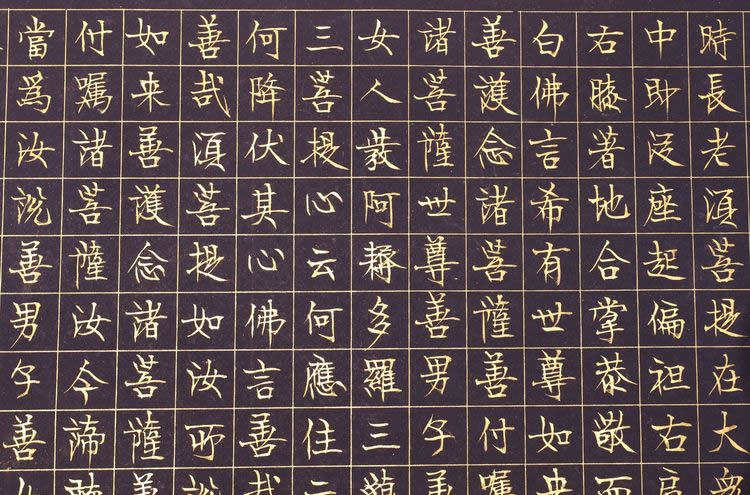 時長老須菩提在大衆
中即従座起偏袒右肩
右膝著地合掌恭敬而
白佛言希有世尊如来
善護念諸菩薩善付囑
諸菩薩世尊善男子善
女人發阿耨多羅三藐
三菩提心云何應住云
何降伏其心佛言善哉
善哉須菩提如汝所說
如来善護念諸菩薩善
付囑諸菩薩汝今諦聽
當爲汝說善男子善